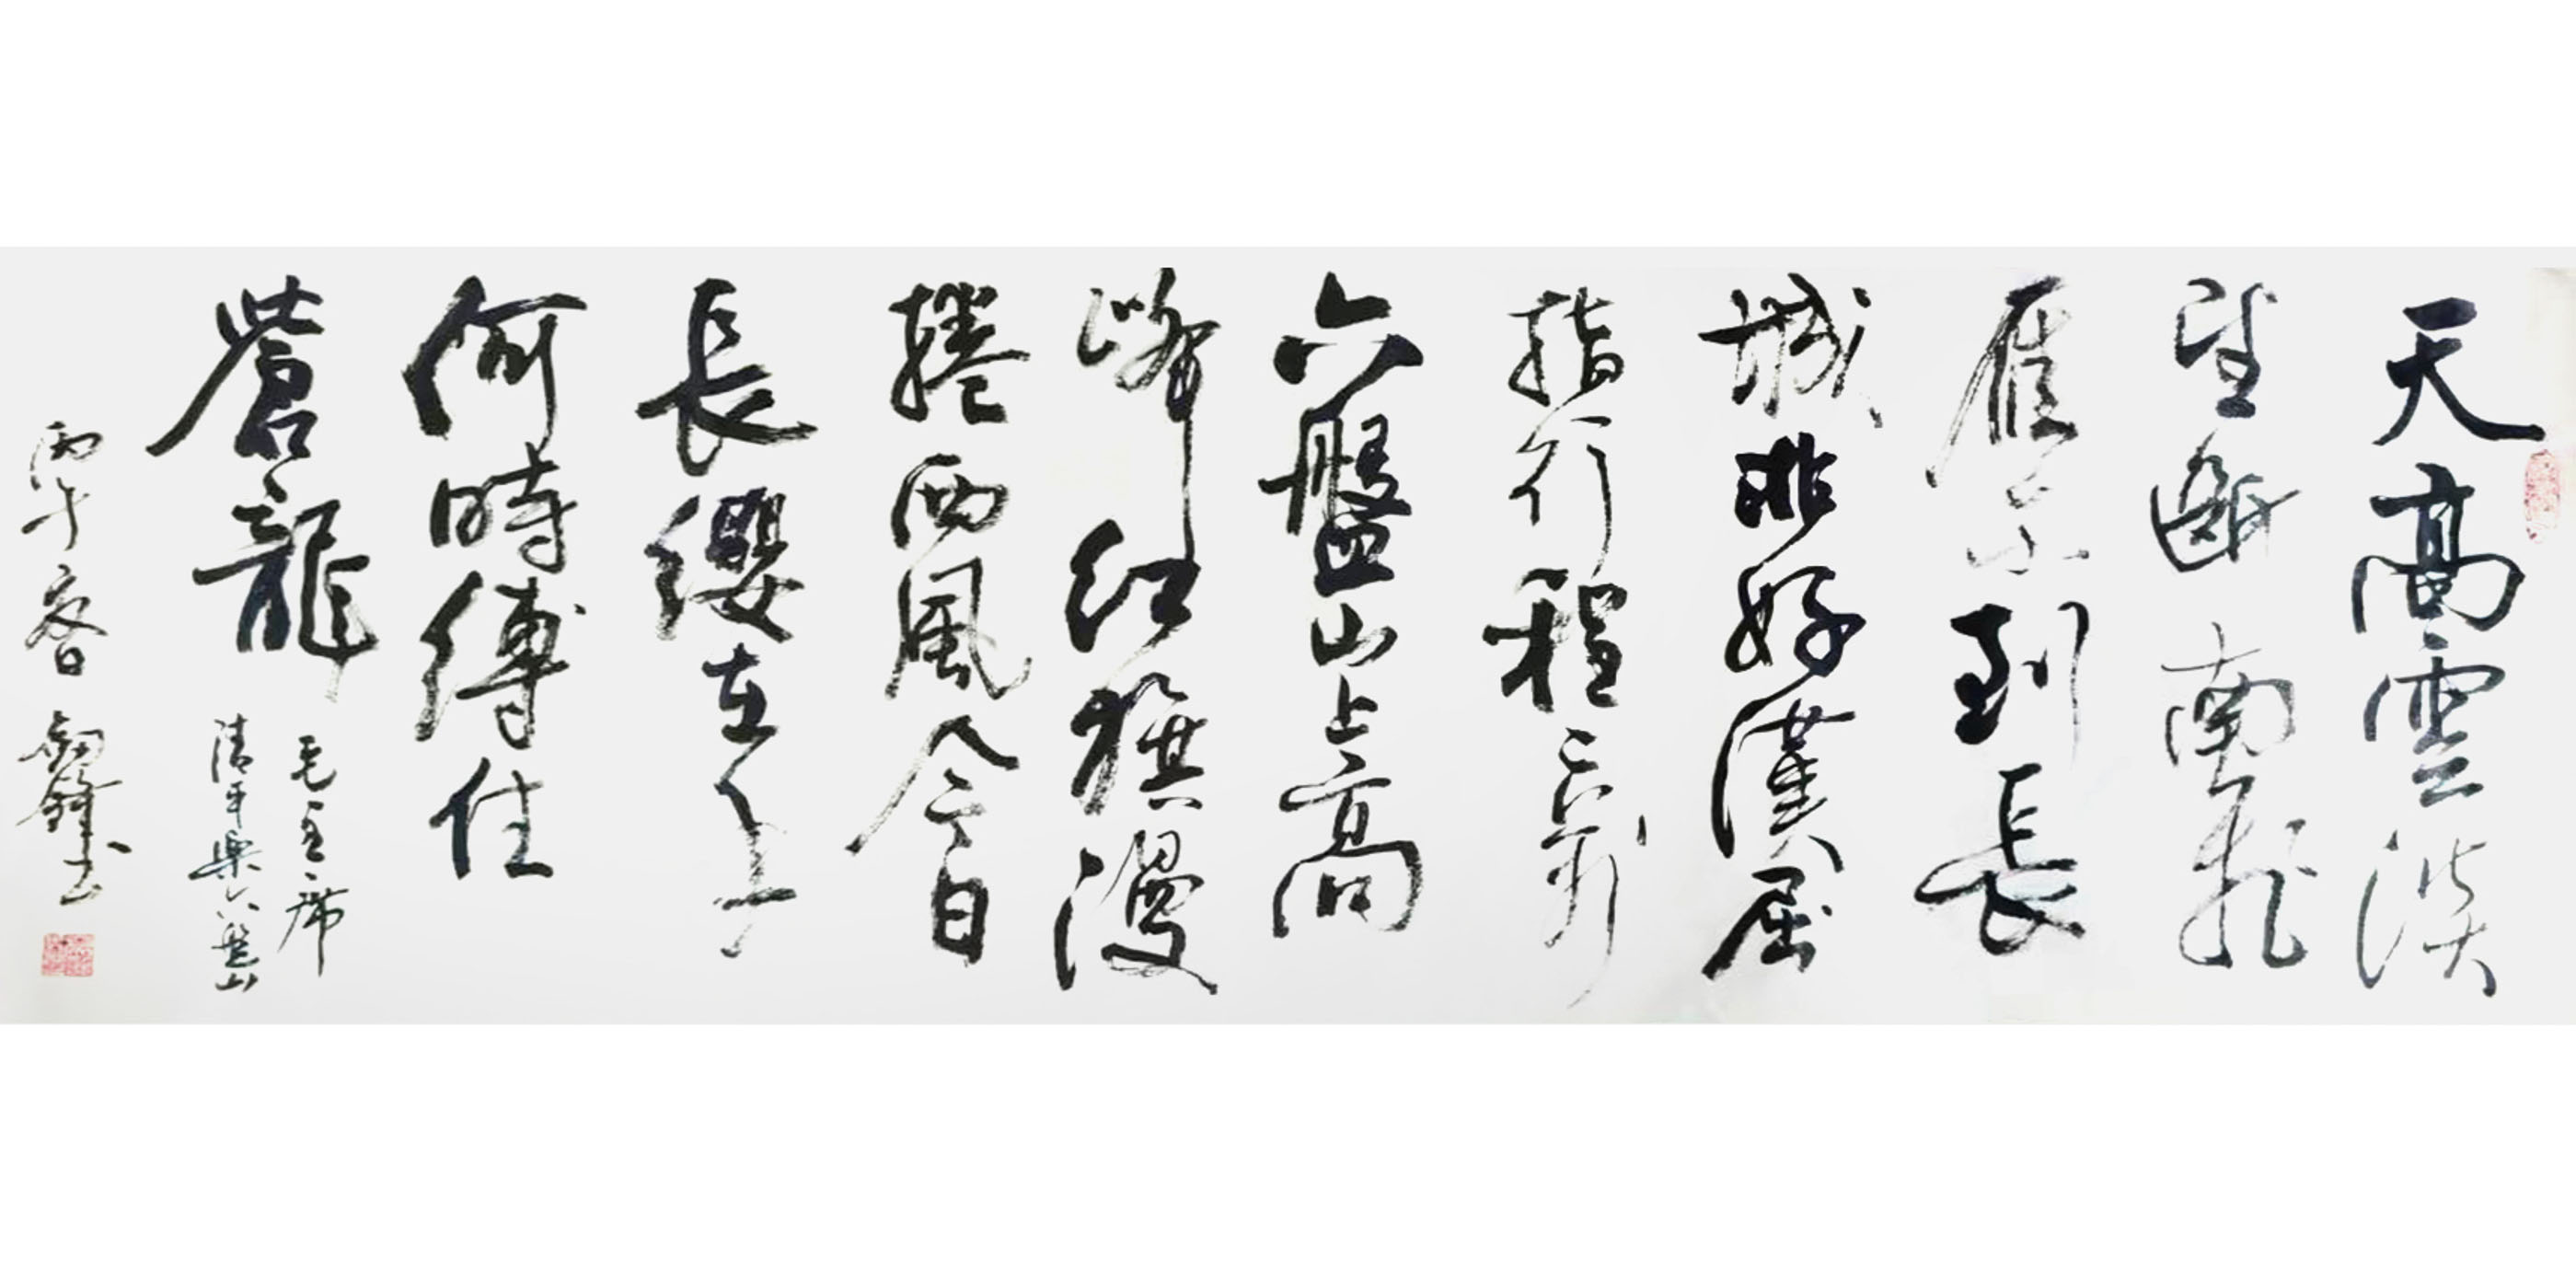 天高雲淡
望斷南飛
雁不到長
城非好漢屈
指行程二万
六盤山上高
峰紅旗漫
捲西風今日
長纓在手
何時縛住
蒼龍
毛主席
清平樂六盤山
丙午春 劍鋒书